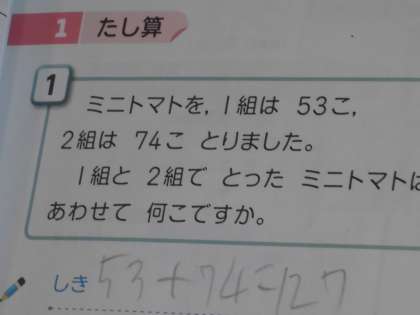 1 たし算
1
ミニトマトを,1組は 53こ,
2組は 74こ とりました。
1組と 2組で とった ミニトマトは
あわせて 何こですか。
しき 53+74=127